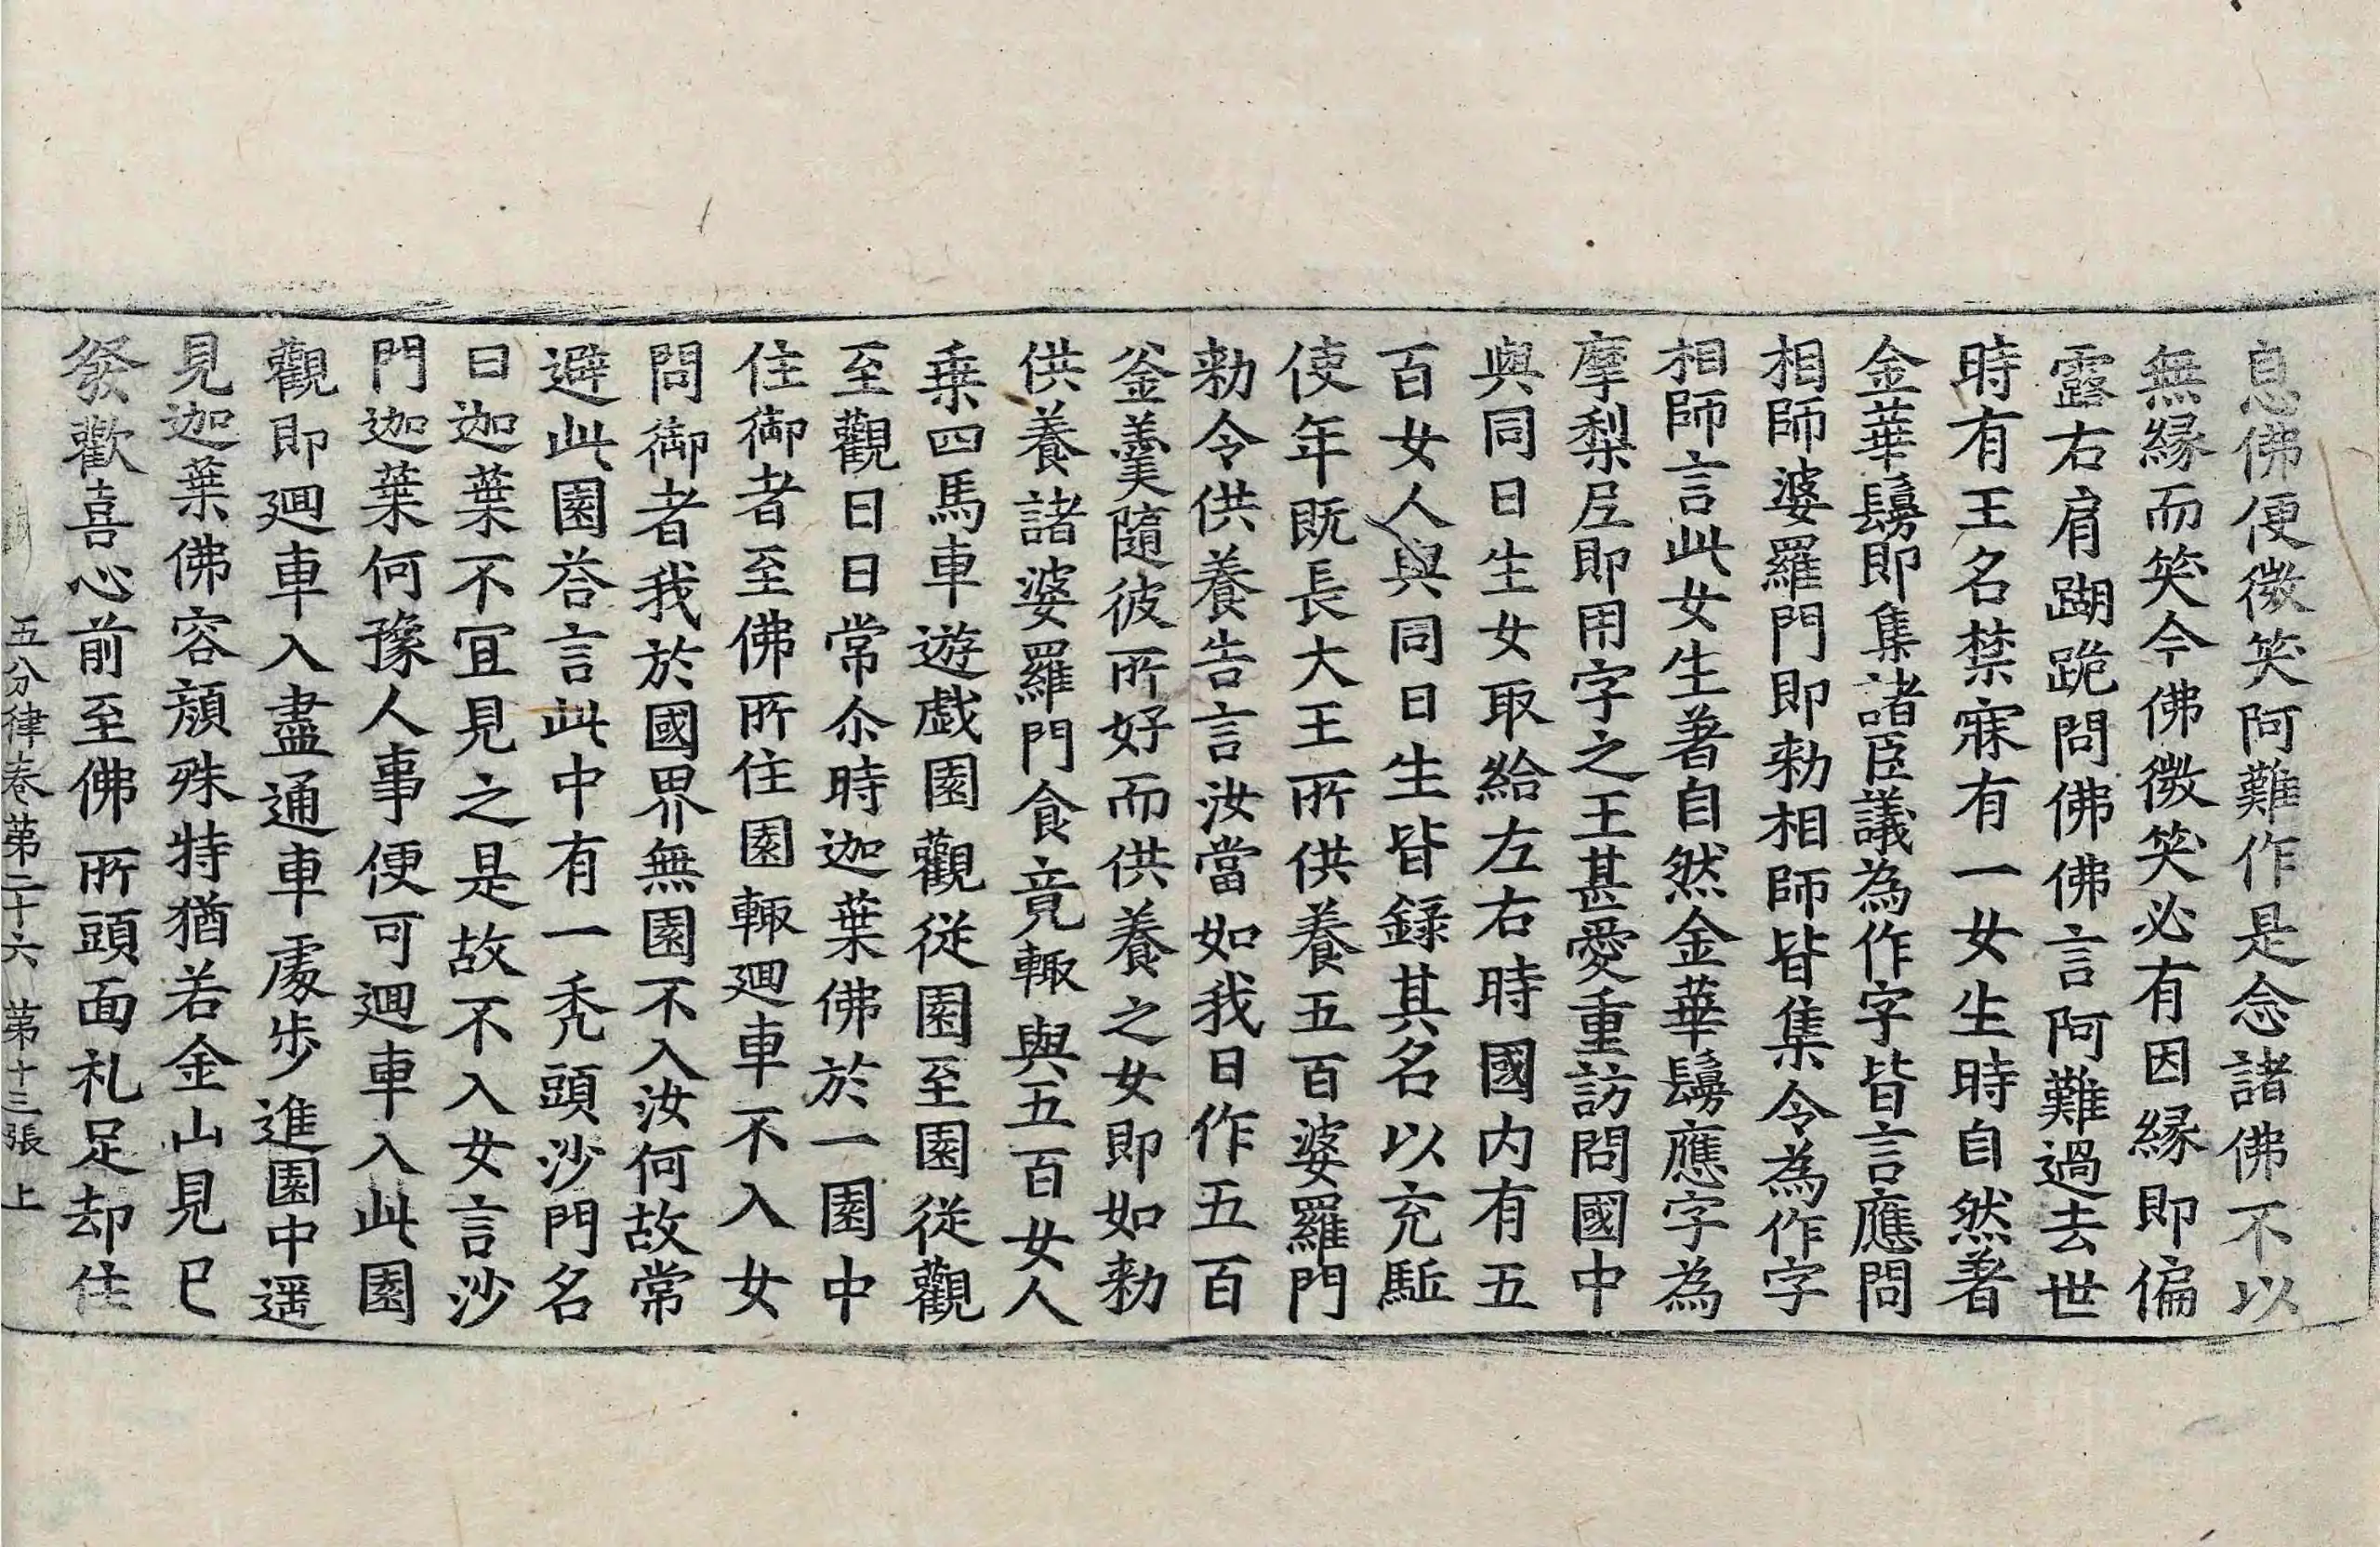 息佛便微笑阿難作是念諸佛不以
無緣而笑今佛微笑必有因緣即偏
露右肩䠒跪問佛佛言阿難過去世
時有王名禁寐有一女生時自然著
金華鬘即集諸臣議為作字皆言應問
相師婆羅門即勑相師皆集令為作字
相師言此女生著自然金華鬘應字為
摩梨尼即用字之王甚愛重訪問國中
與同日生女取給左右時國內有五
百女人與同日生皆録其名以充駈
使年既長大王所供養五百婆羅門
勑令供養告言汝當如我日作五百
釜羹隨彼所好而供養之女即如勑
供養諸婆羅門食竟輙與五百女人
乗四馬車遊戯園觀從園至園從觀
至觀日日常尒時迦葉佛於一園中
住御者至佛所住園輙迴車不入女
問御者我於國界無園不入汝何故常
避此園荅言此中有一禿頭沙門名
曰迦葉不冝見之是故不入女言沙
門迦葉何豫人事便可迴車入此園
觀即迴車入盡通車處步進園中遥
見迦葉佛容顔殊特猶若金山見已
發歡喜心前至佛所頭面礼足却住
五分律卷第二十六 第十三張 上